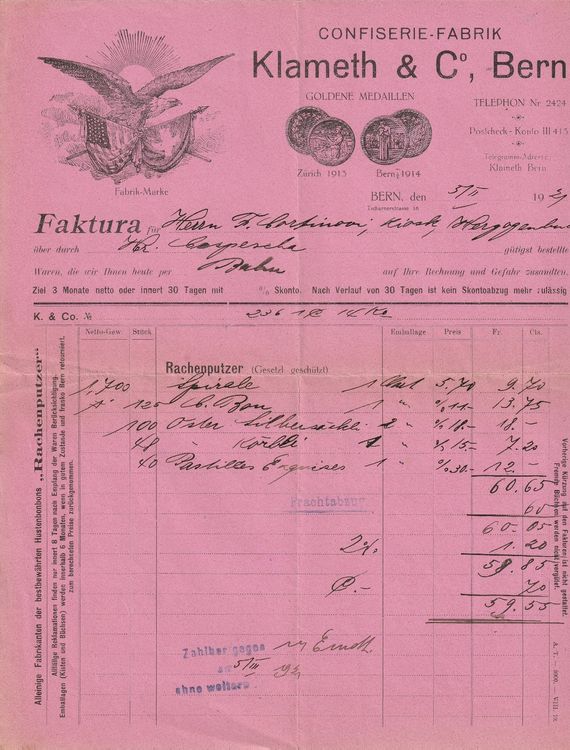 CONFISERIE-FABRIK
Klameth & Cº, Bern
GOLDENE MEDAILLEN
TELEPHON Nr 2424
Postcheck-Konto III 413
Telegramm-Adresse:
Klameth Bern
Zürich 1913
Bern 1914
Fabrik-Marke
BERN, den 5/II 19
Tscharnerstrasse
Faktura für Herrn F. Kiosk,
über durch Hr. gütigst bestellte
Waren, die wir Ihnen heute per Bahn auf Ihre Rechnung und Gefahr zusandten.
Ziel 3 Monate netto oder innert 30 Tagen mit % Skonto. Nach Verlauf von 30 Tagen ist kein Skontoabzug mehr zulässig
K. & Co. №
Netto-Gew. Stück Emballage Preis Fr. Cts.
Rachenputzer (Gesetzl. geschützt)
1,700 Spirale 1 5.70 9.70
125 Bon 1 " 11.- 13.75
100 Oster 2 " 18.- 18.-
48 " " 15.- 7.20
40 Pastilles Exquises 1 " 30.- 12.-
60.65
60
Frachtabzug
60.05
2%. 1.20
58.85
70
59.55
Zahlbar gegen
5/III
ohne weitere
Alleinige Fabrikanten der bestbewährten Hustenbonbons „Rachenputzer“
Allfällige Reklamationen finden nur innert 8 Tagen nach Empfang der Waren Berücksichtigung.
Emballagen (Kisten und Büchsen) werden innerhalb 6 Monaten, wenn in gutem Zustande und franko Bern retourniert,
zum berechneten Preise zurückgenommen.
Vorherige Kürzung auf den Fakturen ist nicht gestattet.
Fremde Büchsen werden nicht vergütet.